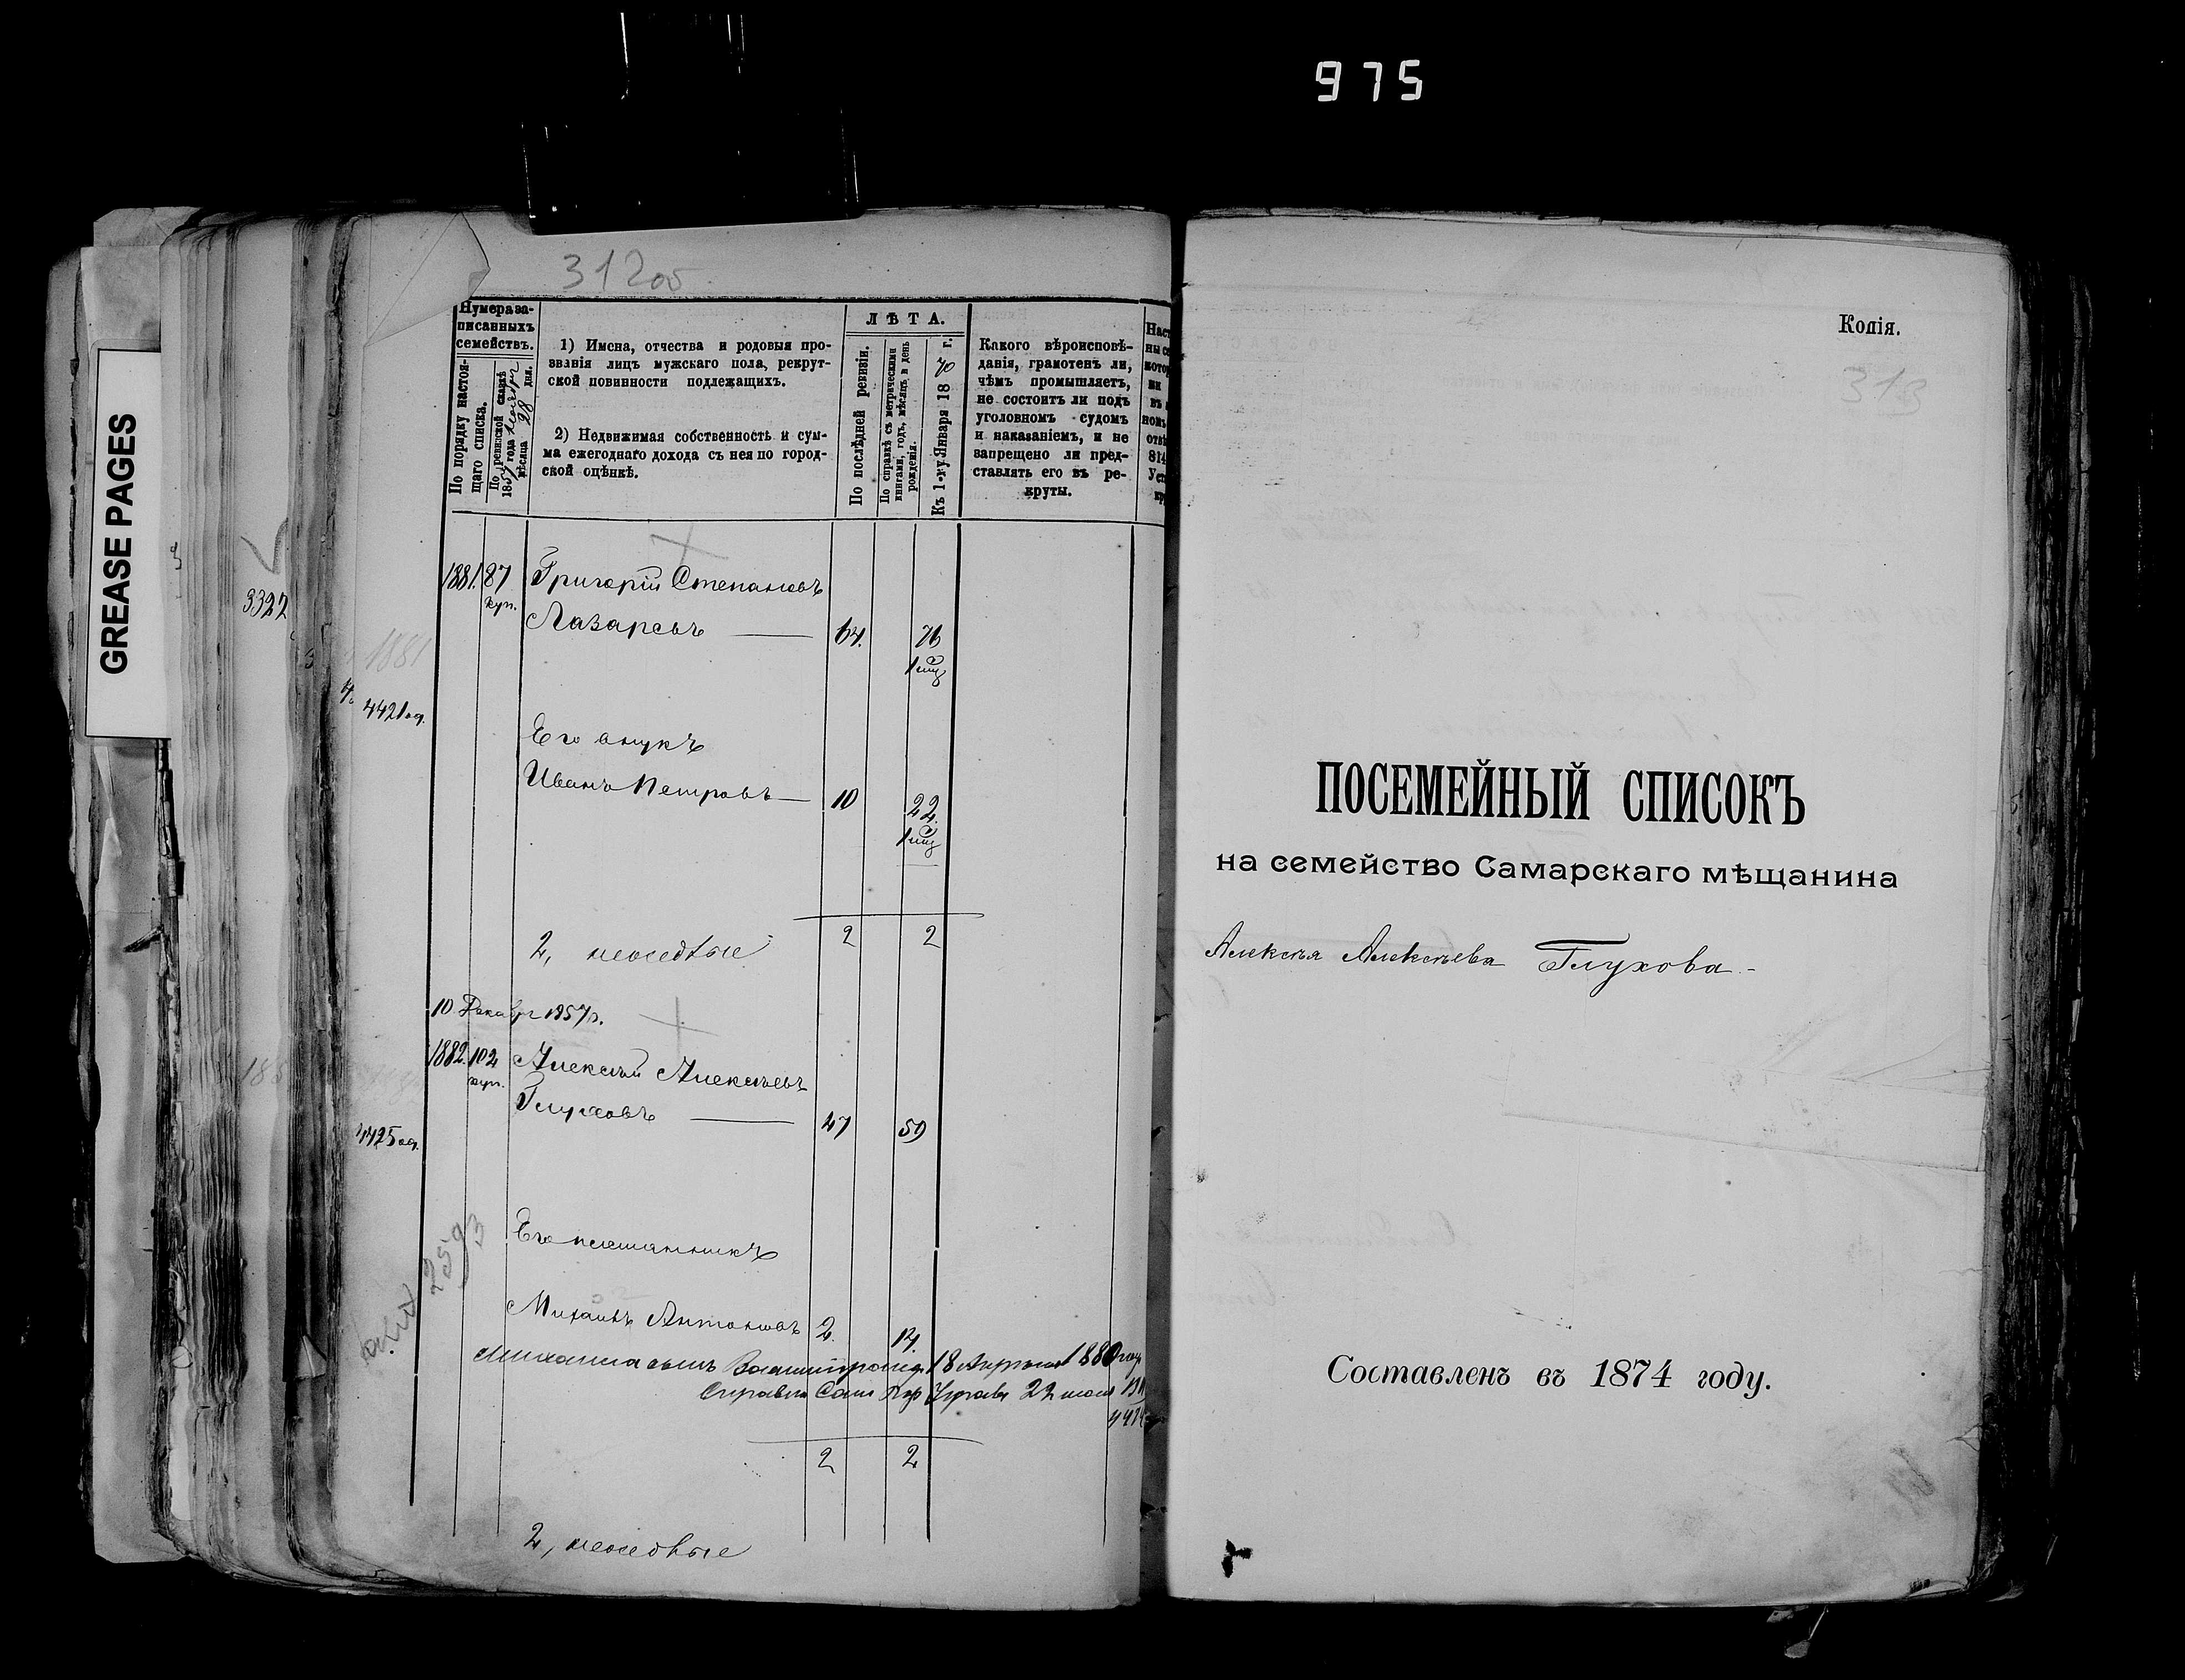 975
GREASE PAGES
3327
312об
Нумера за-
писанныхъ
семействъ.
По порядку настоя-
щаго списка.
По ревизской сказкѣ
1857 года
мѣсяца 28 дня.
1) Имена, отчества и родовыя про-
званія лицъ мужскаго пола, рекрут-
ской повинности подлежащихъ.
2) Недвижимая собственность и сум-
ма ежегоднаго дохода съ нея по город-
ской оцѣнкѣ.
ЛѢТА.
По послѣдней ревизіи.
По справкѣ съ метрическими
книгами, годъ, мѣсяцъ и день
рожденія.
Къ 1-му Января 1870 г.
Какого вѣроисповѣ-
данія, грамотенъ ли,
чѣмъ промышляетъ,
не состоитъ ли подъ
уголовномъ судомъ
и наказаніемъ, и не
запрещено ли пред-
ставлять его въ ре-
круты.
1881. 87 Григорій Степановъ
куп.
Лазаревъ 64. 76
1881
4421
Его внукъ
Иванъ Петровъ 10 22.
2 2
2,
10 Декабр 1857г.
1882. 102 Алексѣй Алексѣевъ
куп.
Глуховъ 47 59
4425
Его племянникъ
2593
Михаилъ Антоновъ 2. 14.
Михаила сынъ 18 Апрѣля 1880
Справка Сам 22 июля
2 2
2,
Копія.
313
ПОСЕМЕЙНЫЙ СПИСОКЪ
на семейство Самарскаго мѣщанина
Алексѣя Алексѣева Глухова.-
Составленъ въ 1874 году.